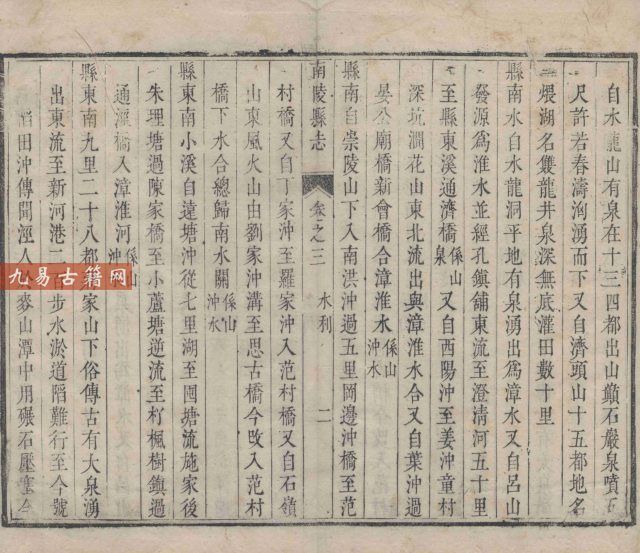 自水龍山有泉在十三四都出山巔石巖泉噴
尺許若春濤洶湧而下又自濟頭山十五都地名
煨湖名雙龍井泉深無底灌田數十里
縣南水自水龍洞平地有泉湧出爲漳水又自呂山
發源爲淮水並經孔鎭舖東流至澄清河五十里
至縣東溪通濟橋係山泉又自西陽沖至姜沖童村
深坑澗花山東北流出與漳淮水合又自葉沖過
晏公廟橋新會橋合漳淮水係山沖水
縣南自崇陵山下入南洪沖過五里岡邊沖橋至范
南陵縣志 卷之三 水利 二
村橋又自丁家沖至羅家沖入范村橋又自石嶺
山東風火山由劉家沖溝至思古橋今改入范村
橋下水合總歸南水關係山沖水
縣東南小溪自遠塘沖從七里湖至囤塘流施家後
朱理塘過陳家橋至小蘆塘逆流至杍楓樹鎭過
通濟橋入漳淮河係山沖
縣東南九里二十八都家山下俗傳古有大泉湧
出東流至新河港二步水淤道陷難行至今號
田沖傳聞涇人麥山潭中用碾石壓塞今
九易古籍网